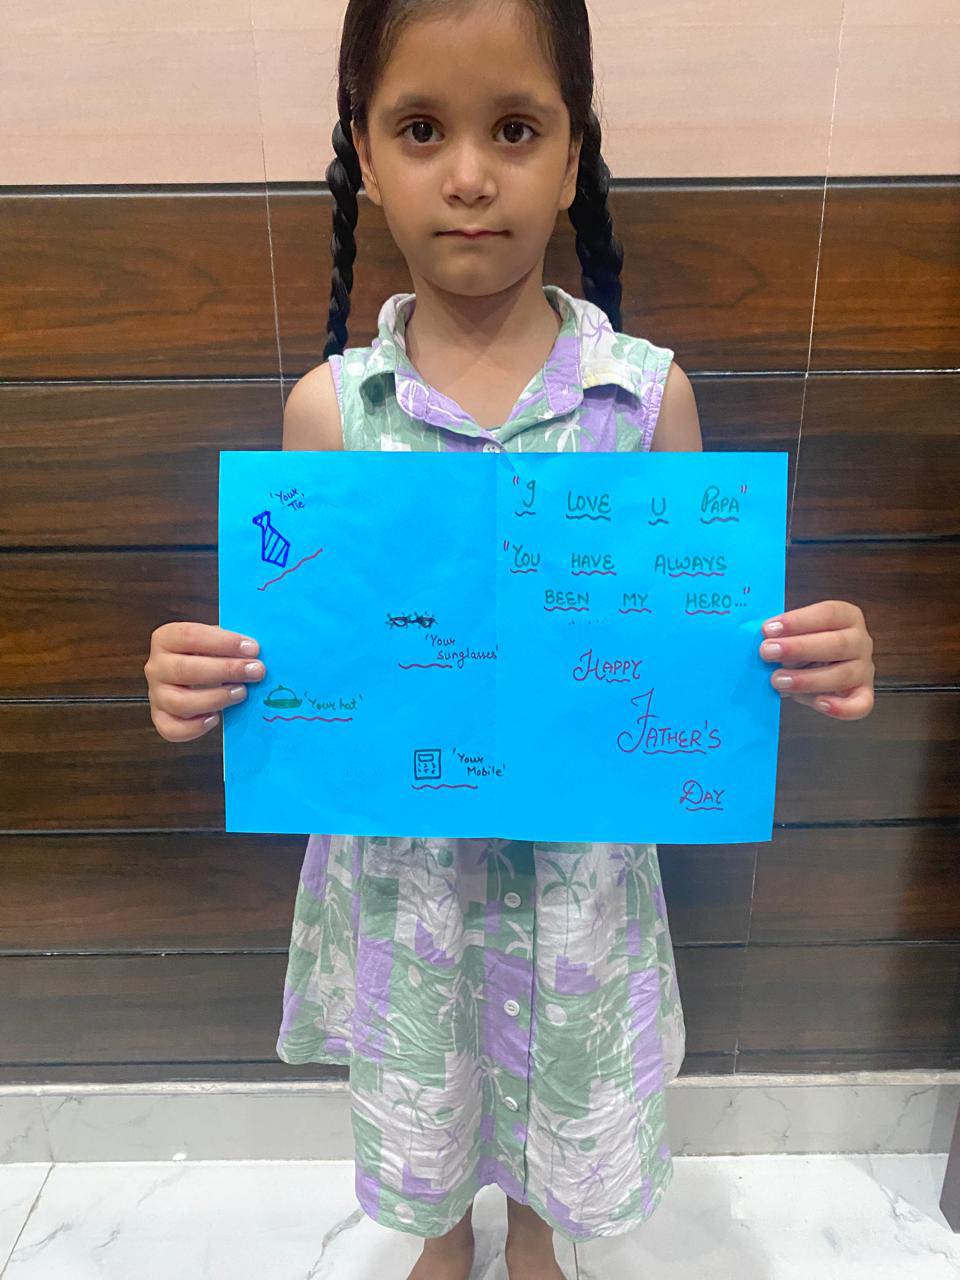 'Your
Tie'
'Your
Sunglasses'
'Your hat'
'Your
Mobile'
"I LOVE U PAPA"
"YOU HAVE ALWAYS
BEEN MY HERO..."
HAPPY
FATHER'S
DAY